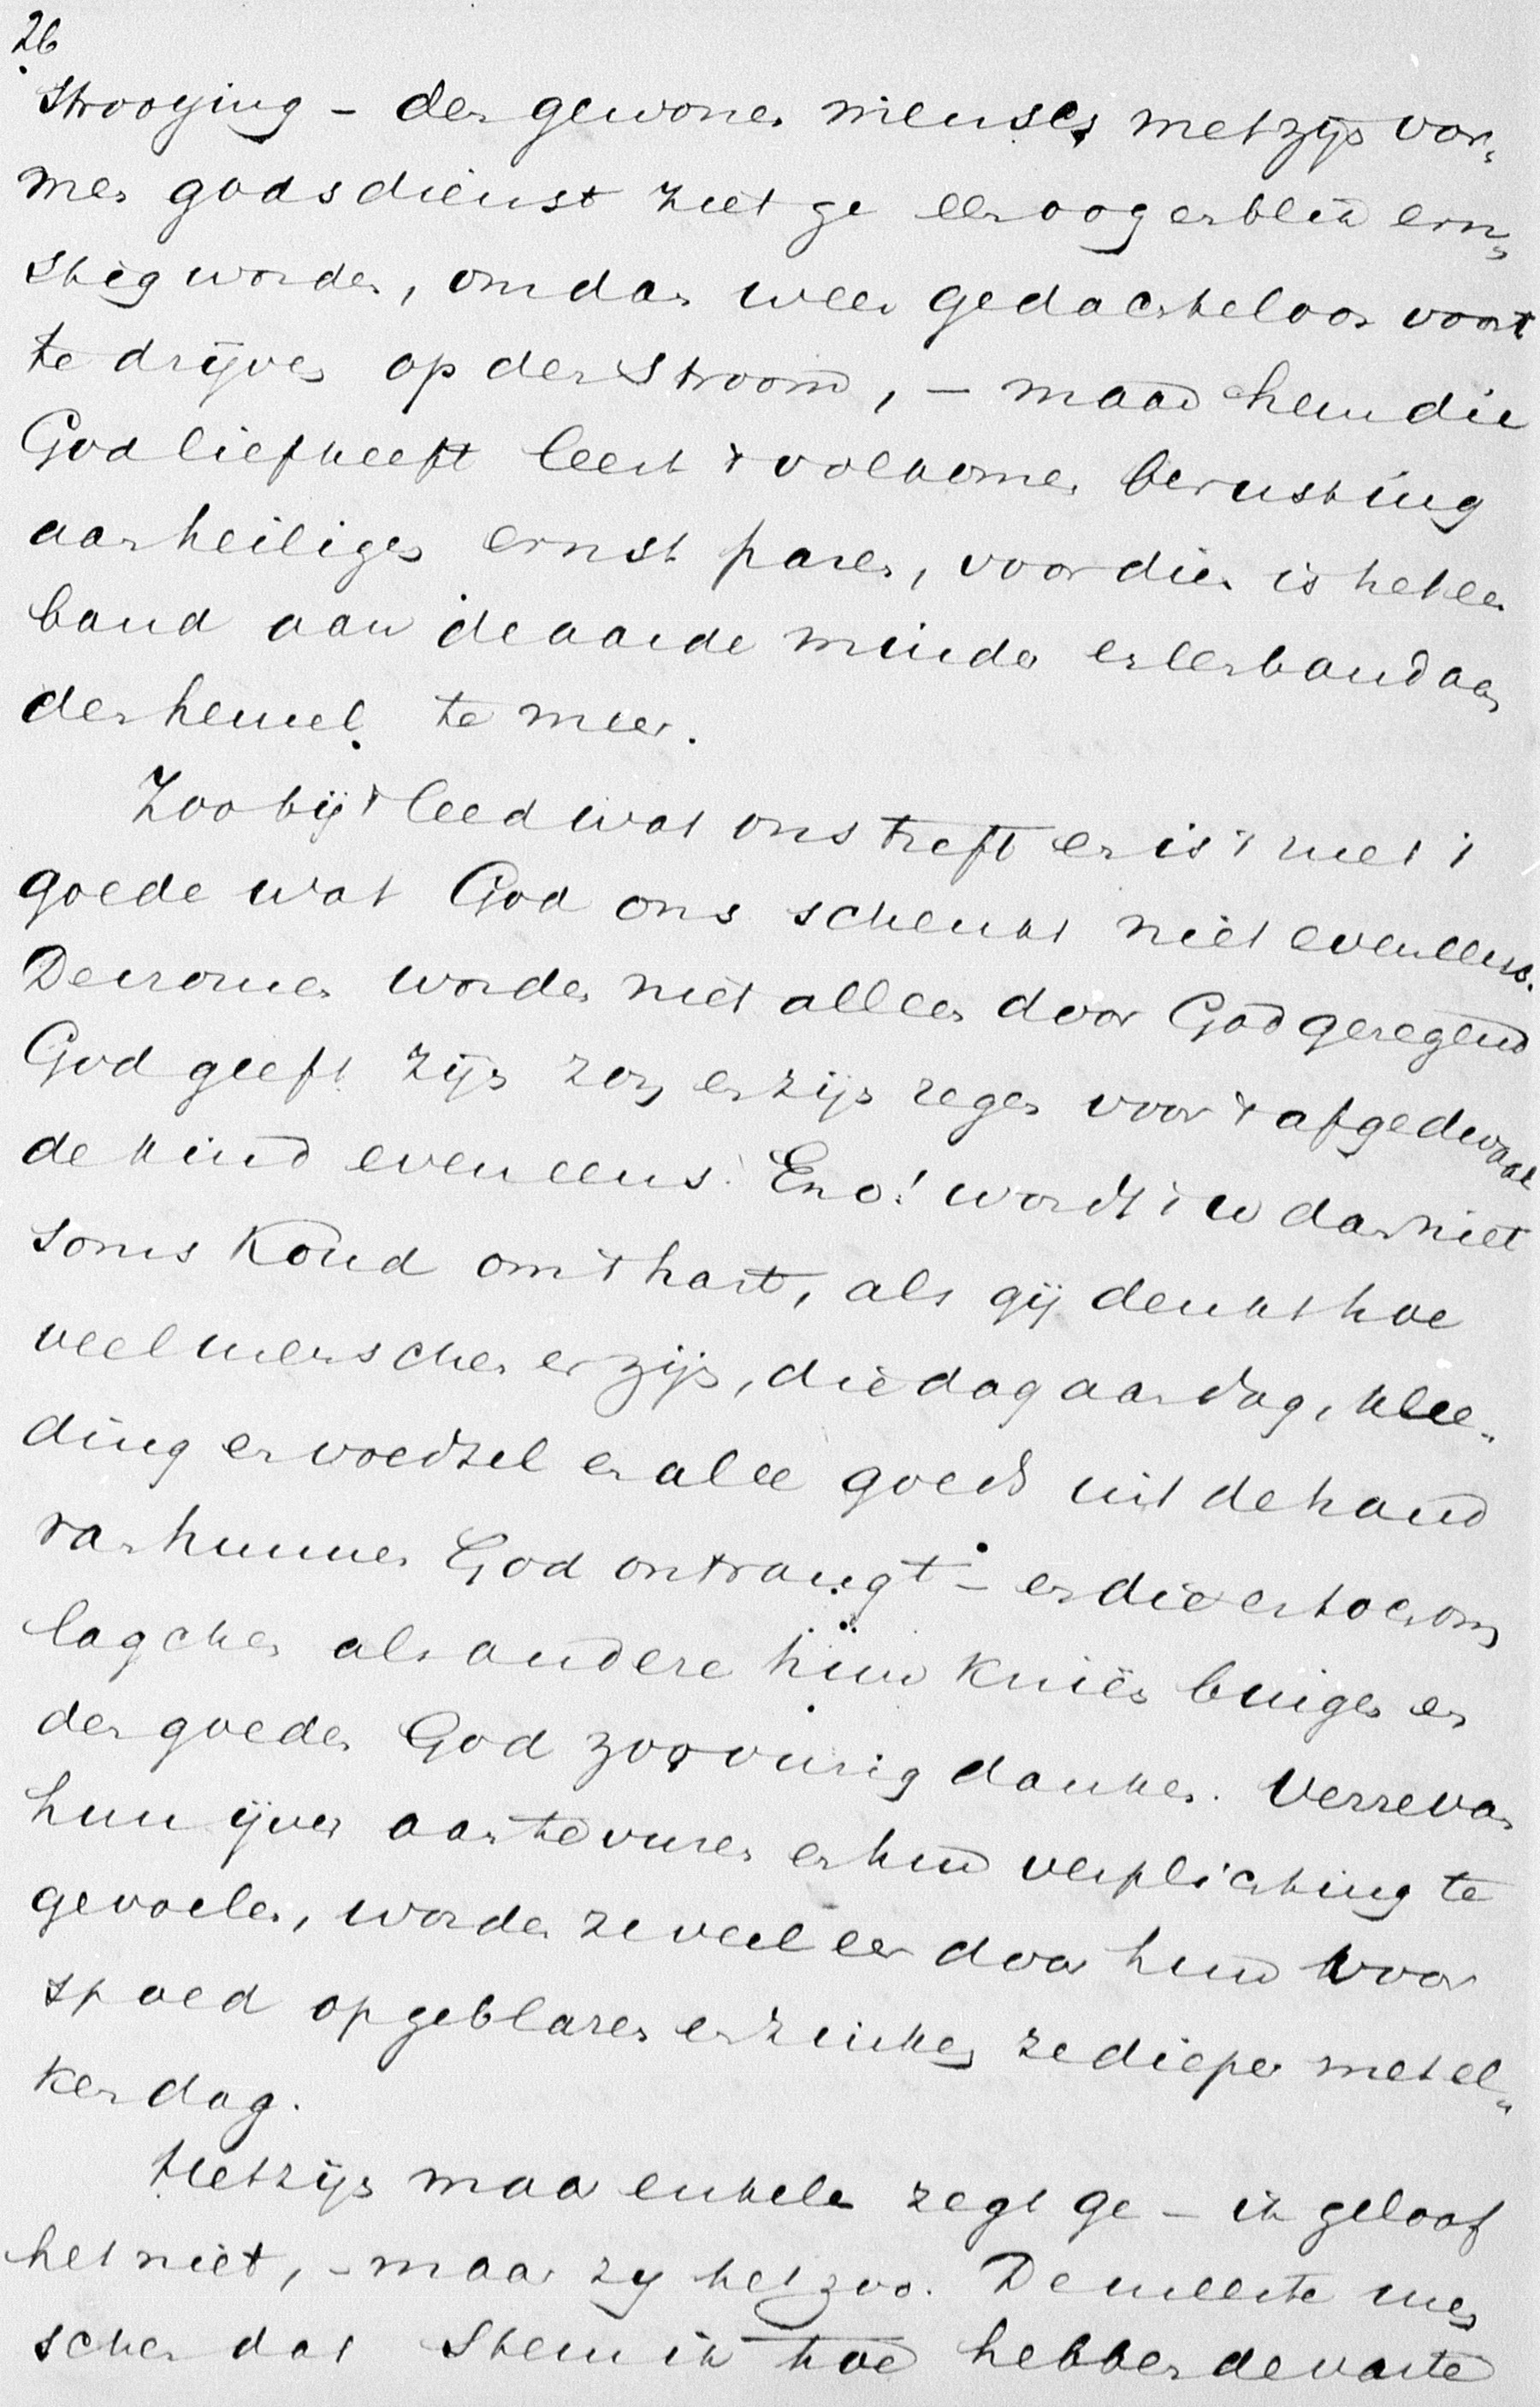 26
strooying – den gewonen mensch met zijn vor„
men godsdienst ziet ge een oogenblik ern„
stig worden, om dan weer gedachteloos voort
te drijven op den stroom, – maar hem die
God liefheeft leert 't volkomen berusting
aan heiligen ernst paren, voor dien is het een
band aan de aarde minder en een band aan
den hemel te meer.
Zoo bij 't leed wat ons treft en is 't met 't
goede wat God ons schenkt niet eveneens.
De vromen worden niet alleen door God gezegend
God geeft zijn zon en zijn regen voor 't afgedwaal
de kind eveneens. En o! wordt 't u dan niet
soms koud om 't hart, als gij denkt hoe
veel menschen er zijn, die dag aan dag, klee„
ding en voedsel en alle goeds uit de hand
van hunnen God ontvangt – en die er toch om
lagchen als andere hun knieën buigen en
den goeden God zoo vurig danken. Verre van
hun ijver aan te vuren en hun verplichting te
gevoelen, worden ze veeleer door hun voor
spoed opgeblazen en zinken ze dieper met el„
ken dag.
Het zijn maar enkelen zegt ge – ik geloof
het niet, – maar zij het zoo. De meeste men
schen dat stem ik toe hebben de vaste